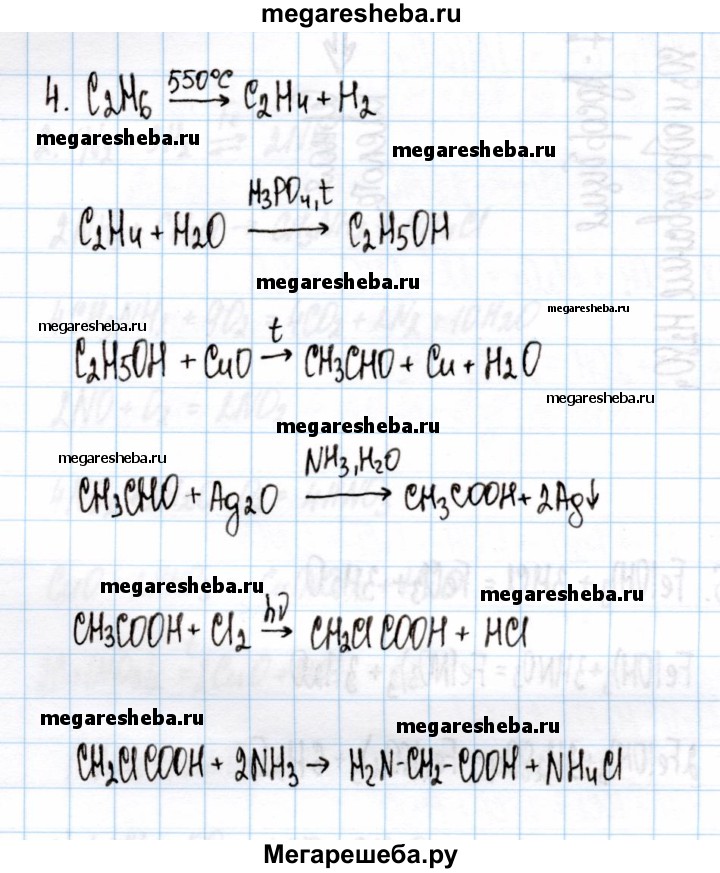 megaresheba.ru
4. C₂H₆ 550°C → C₂H₄ + H₂
megaresheba.ru
megaresheba.ru
C₂H₄ + H₂O H₃PO₄, t → C₂H₅OH
megaresheba.ru
megaresheba.ru
megaresheba.ru
C₂H₅OH + CuO t → CH₃CHO + Cu + H₂O
megaresheba.ru
megaresheba.ru
megaresheba.ru
CH₃CHO + Ag₂O NH₃, H₂O → CH₃COOH + 2Ag↓
megaresheba.ru
megaresheba.ru
CH₃COOH + Cl₂ hν → CH₂ClCOOH + HCl
megaresheba.ru
megaresheba.ru
CH₂ClCOOH + 2NH₃ → H₂N-CH₂-COOH + NH₄Cl
Мегарешеба.ру